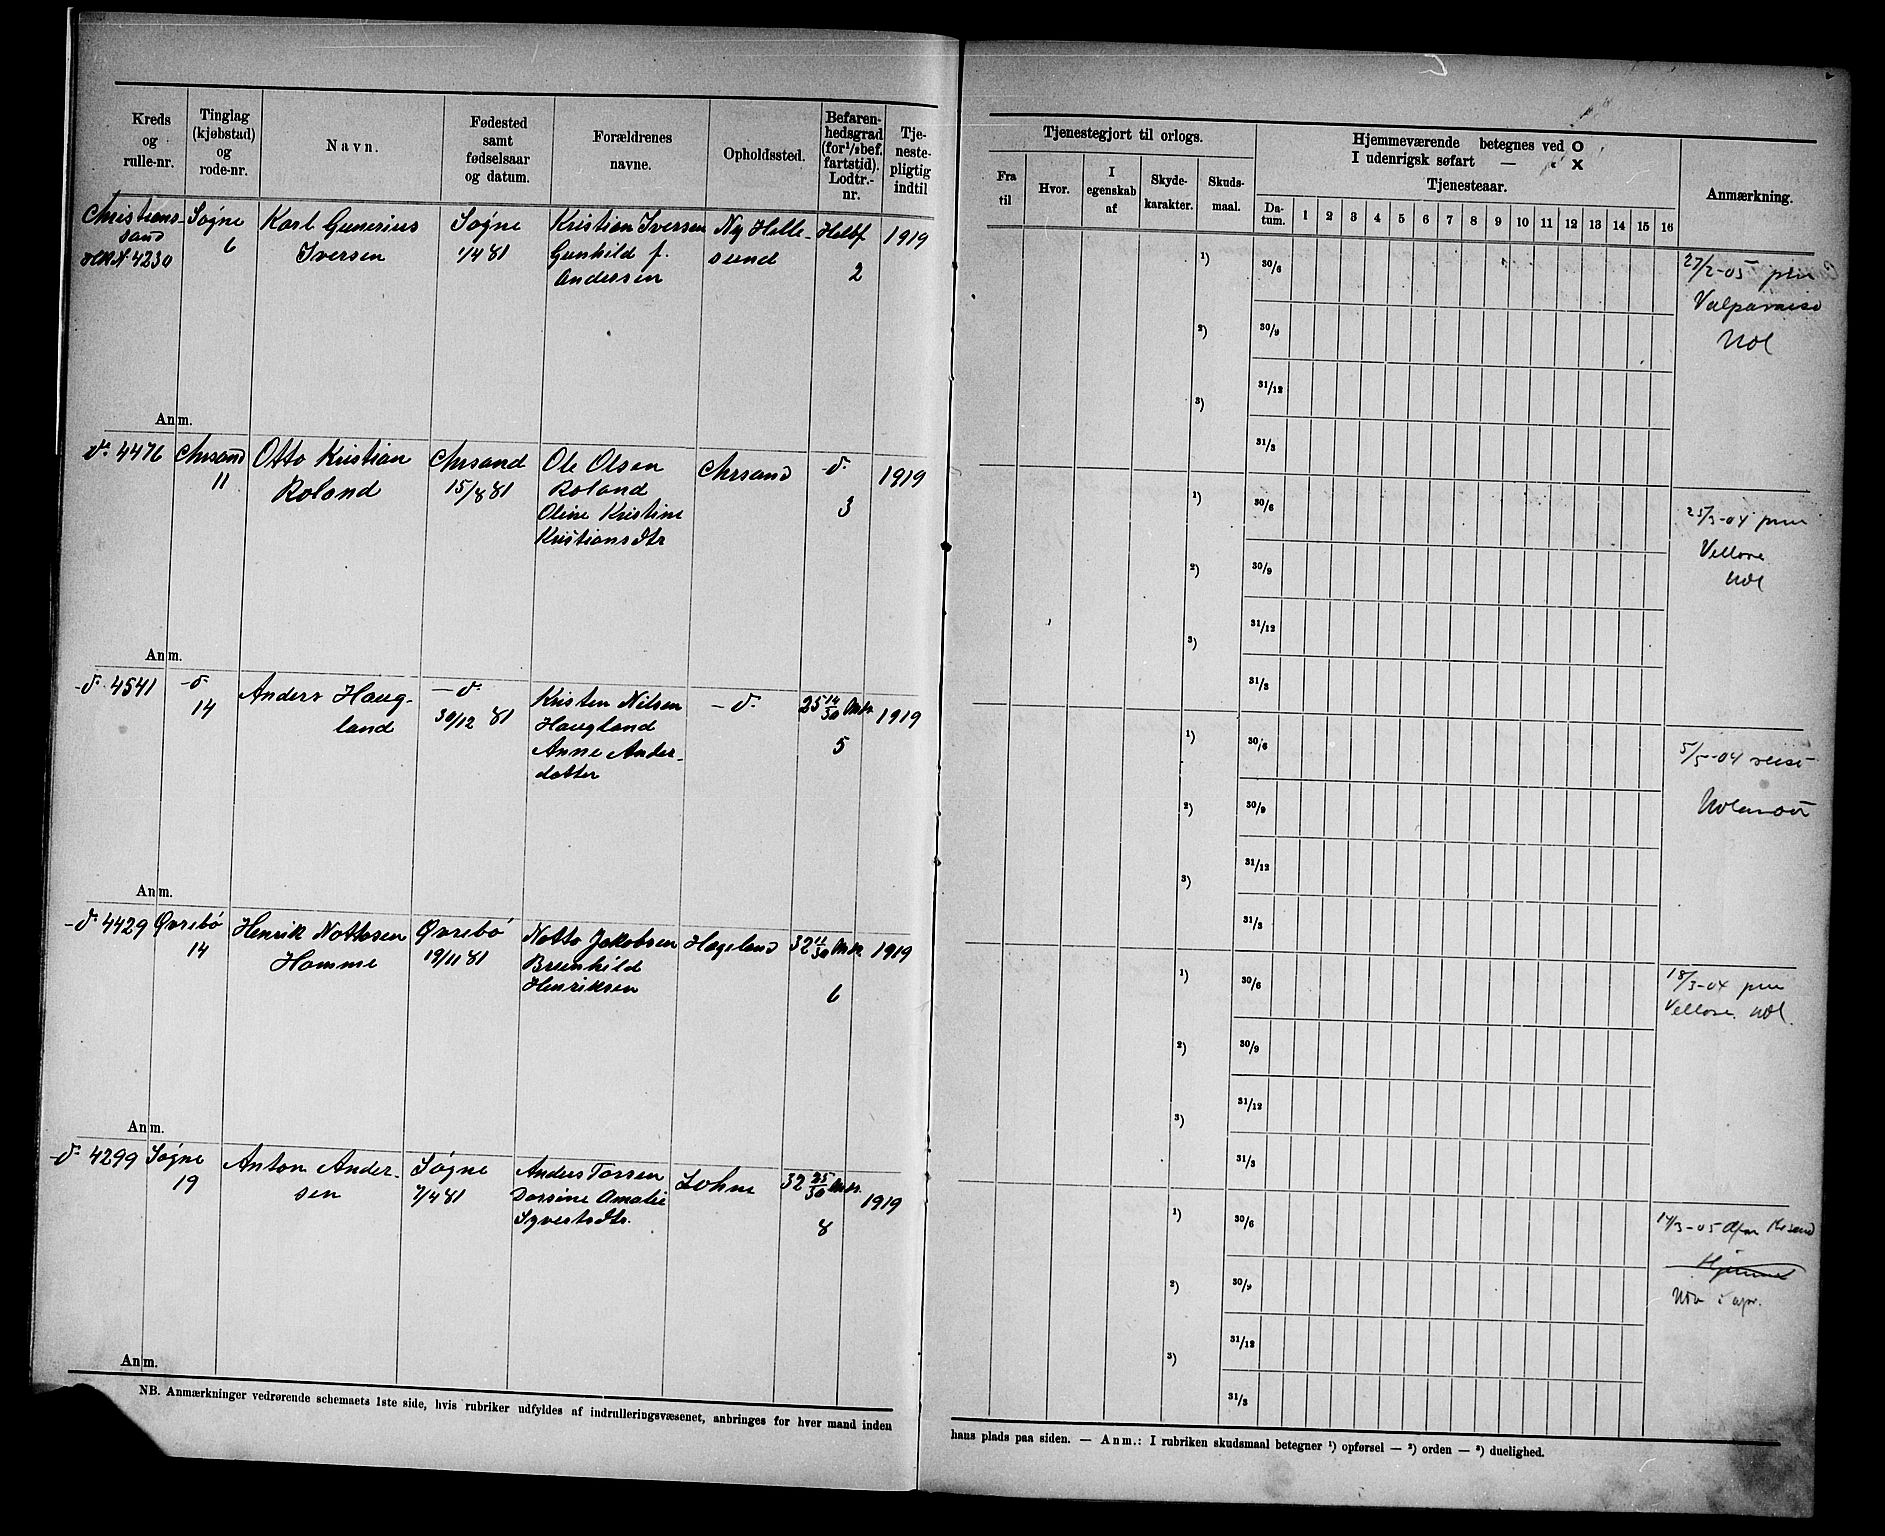 Kreds og rulle-nr.
Tinglag (kjøbstad) og rode-nr.
Navn.
Fødested samt fødselsaar og datum.
Forældrenes navne.
Opholdssted.
Befaren-hedsgrad (for ½bef. fartstid). Lodtr.-nr.
Tje-neste-pligtig indtil
Tjenestegjort til orlogs.
Fra til
Hvor.
I egenskab af
Skyde-karakter.
Skuds-maal.
Hjemmeværende betegnes ved O
I udenrigsk søfart — X
Tjenesteaar.
Da-tum. 1 2 3 4 5 6 7 8 9 10 11 12 13 14 15 16
Anmærkning.
Christians- Søgne Karl Gunerius Søgne Kristian Iversen Ny Helle- Helbf 1919
sand 6 Iversen 1/4 81 Gunhild f. sund 2
4230 Andersen
¹) 30/6
²) 30/9
³) 31/12
31/3
27/2-05
Valparaiso
Udl
Anm.
d. 4476 Chrsand Otto Kristian Chrsand Ole Olsen Chrsand d. 1919
11 Roland 15/8 81 Roland 3
Oline Kristine
Kristiansdtr
¹) 30/6
²) 30/9
³) 31/12
31/3
25/3-04
Vellore
Udl
Anm.
d. 4541 d. Anders Haug- d. Kristen Nilsen d. 25 14/30 1919
14 land 30/12 81 Haugland 5
Anne Ander-
datter
¹) 30/6
²) 30/9
³) 31/12
31/3
5/5-04
Anm.
d. 4429 Øvrebø Henrik Nottosen Øvrebø Notto Jakobsen Hægeland 32 11/30 1919
14 Homme 19/11 81 Brunhild 6
Henriksen
¹) 30/6
²) 30/9
³) 31/12
31/3
18/3-04
Vellore. Udl.
Anm.
d. 4299 Søgne Anton Ander- Søgne Anders Torsen Lohne 32 25/30 1919
19 sen 7/4 81 Torsine Amalie 8
Syvertsdtr.
¹) 30/6
²) 30/9
³) 31/12
31/3
14/3-05
Anm.
NB. Anmærkninger vedrørende schemaets 1ste side, hvis rubriker udfyldes af indrulleringsvæsenet, anbringes for hver mand inden
hans plads paa siden. — Anm.: I rubriken skudsmaal betegner ¹) opførsel — ²) orden — ³) duelighed.